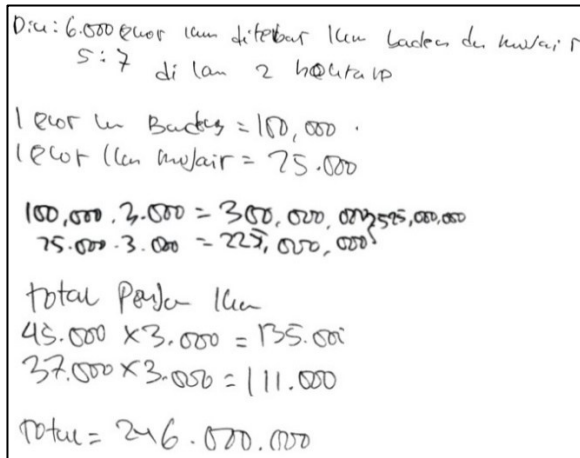 Dik: 6.000 ekor ikan ditebar ikan bades dan mujair
5:7 di lam 2 hektar
1 ekor ikan Bades = 100,000.
1 ekor ikan mujair = 75.000
100,000 . 3.000 = 300,000,000 } 525,000,000
75.000 . 3.000 = 225,000,000
total ikan
45.000 x 3.000 = 135.000
37.000 x 3.000 = 111.000
Total = 246.000.000